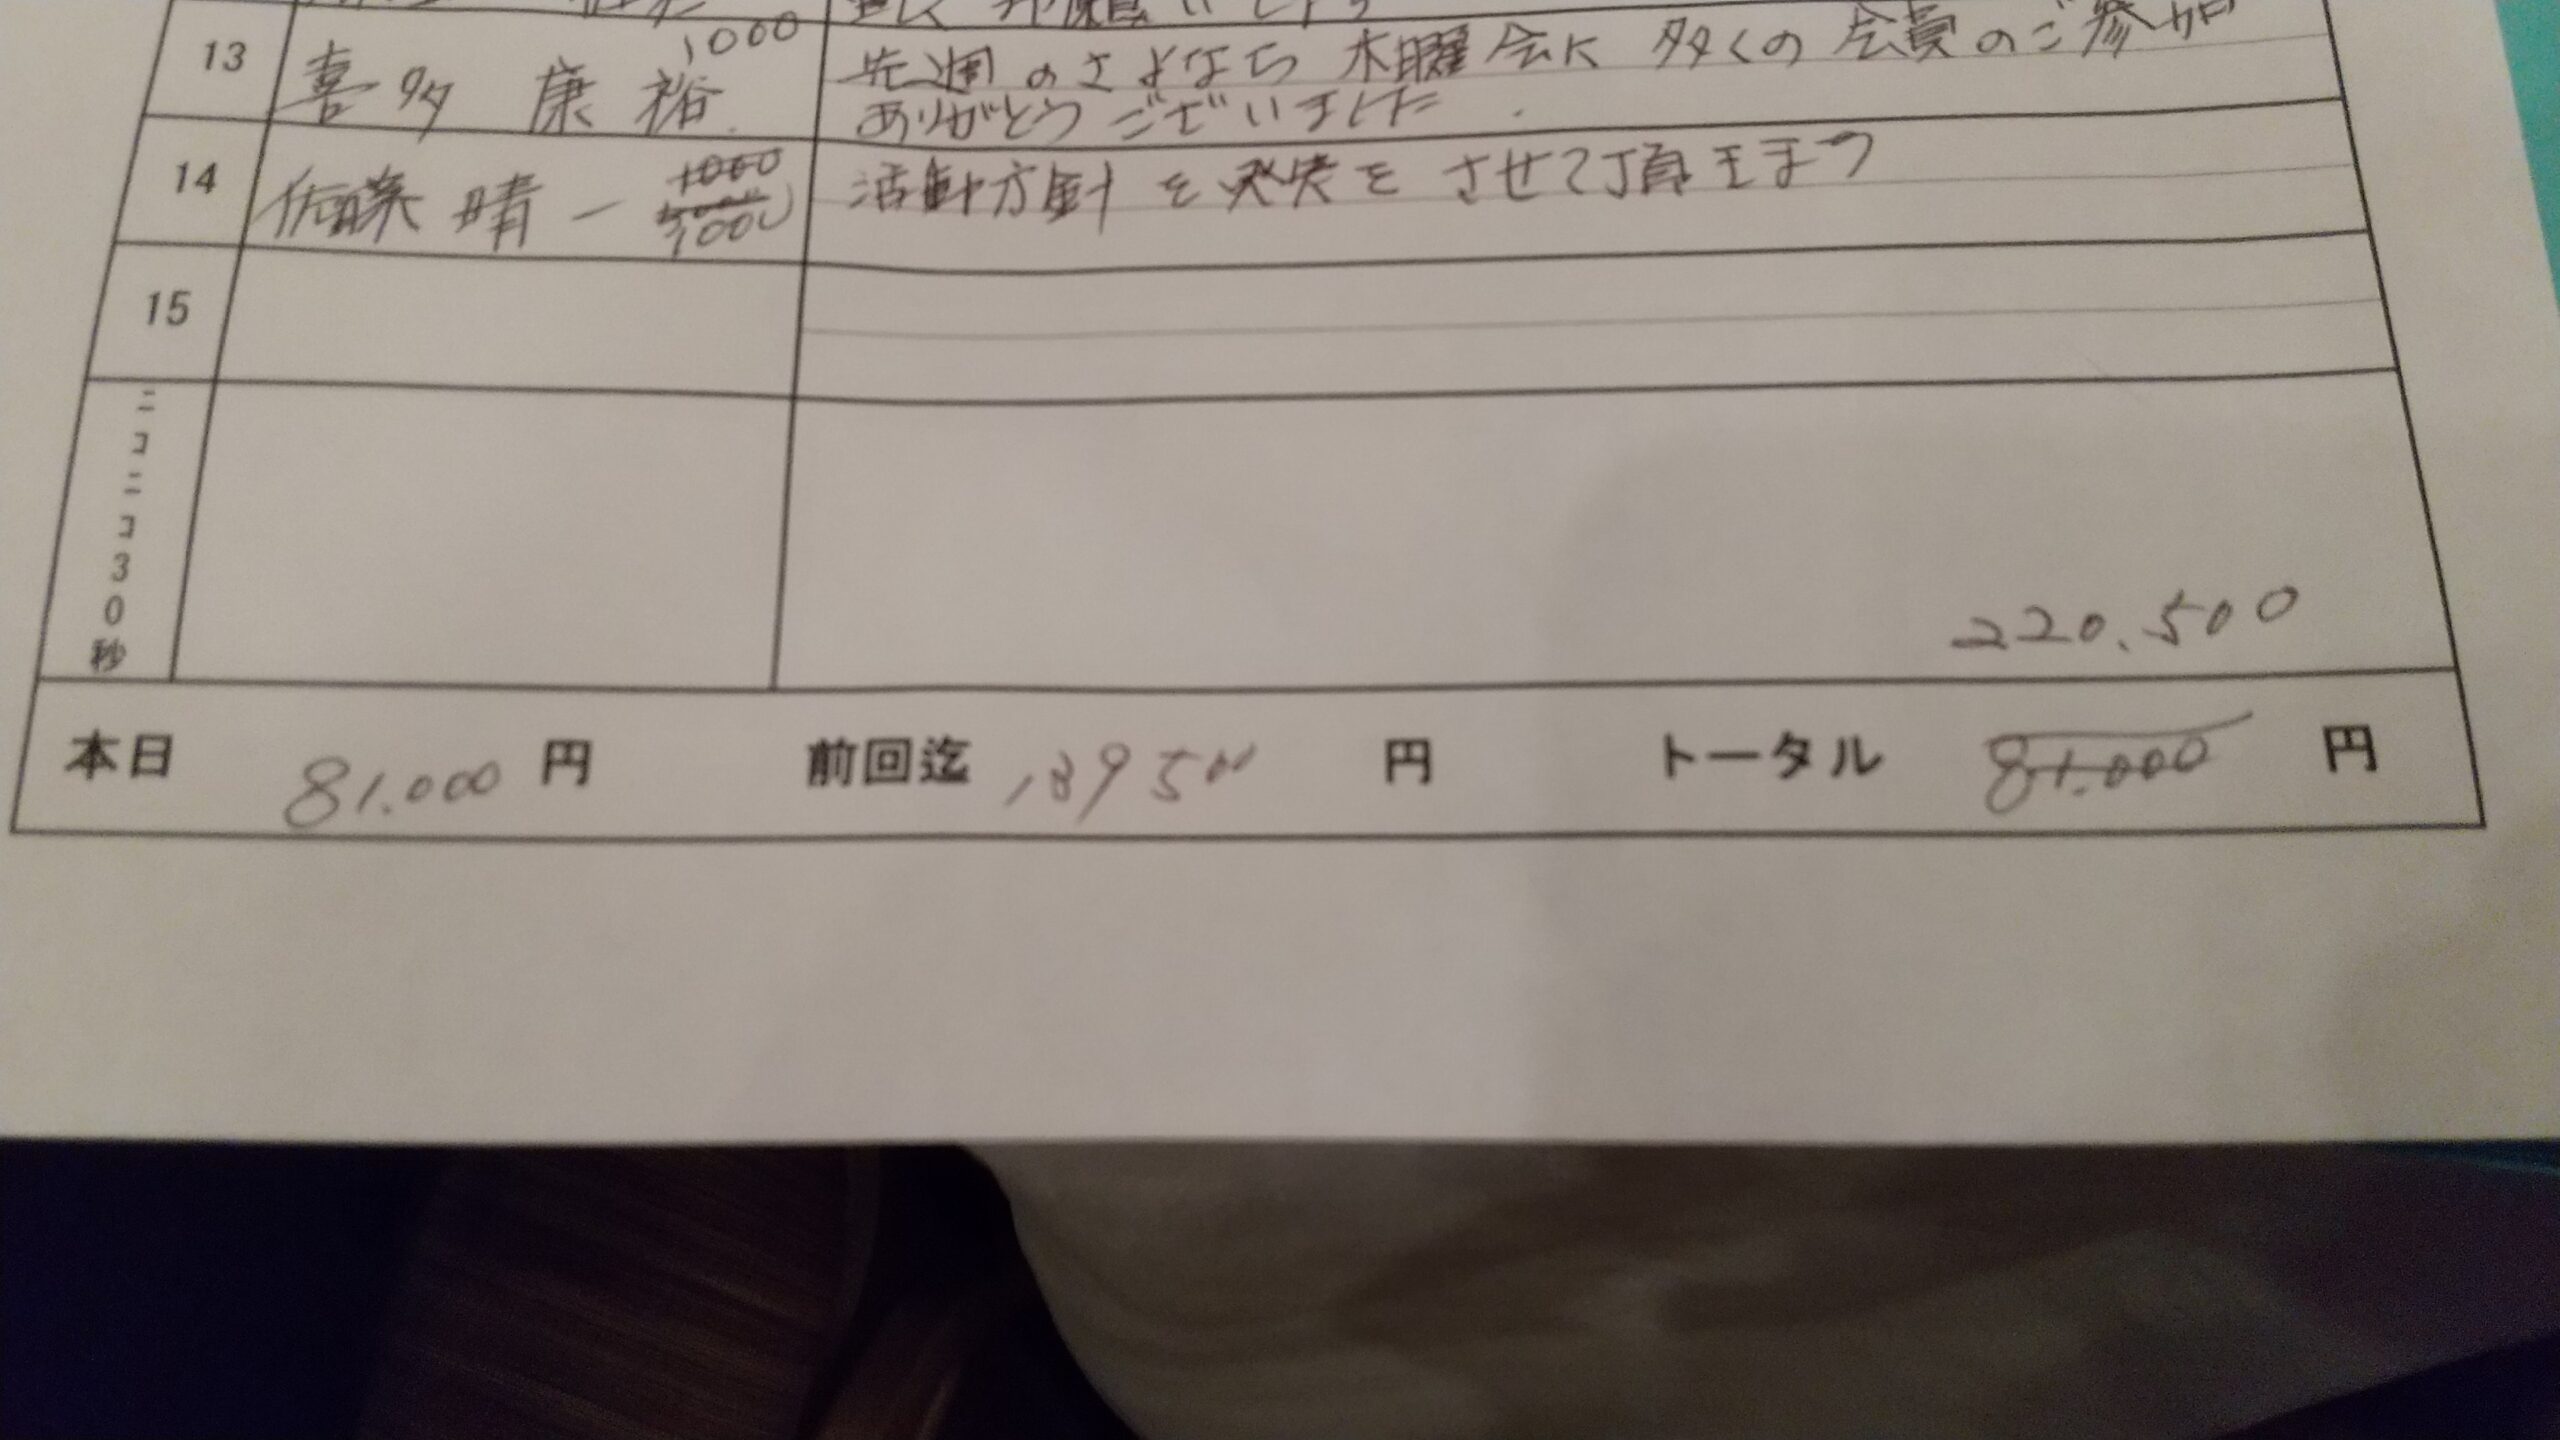 13 喜多 康裕 1000 先週のさよなら木曜会に多くの会員のご参加
ありがとうございました.
14 佐藤 晴一 1000 活動方針を発表をさせて頂きます
1000
15
ニコニコ30秒
220.500
本日 81.000 円 前回迄 円 トータル 81.000 円